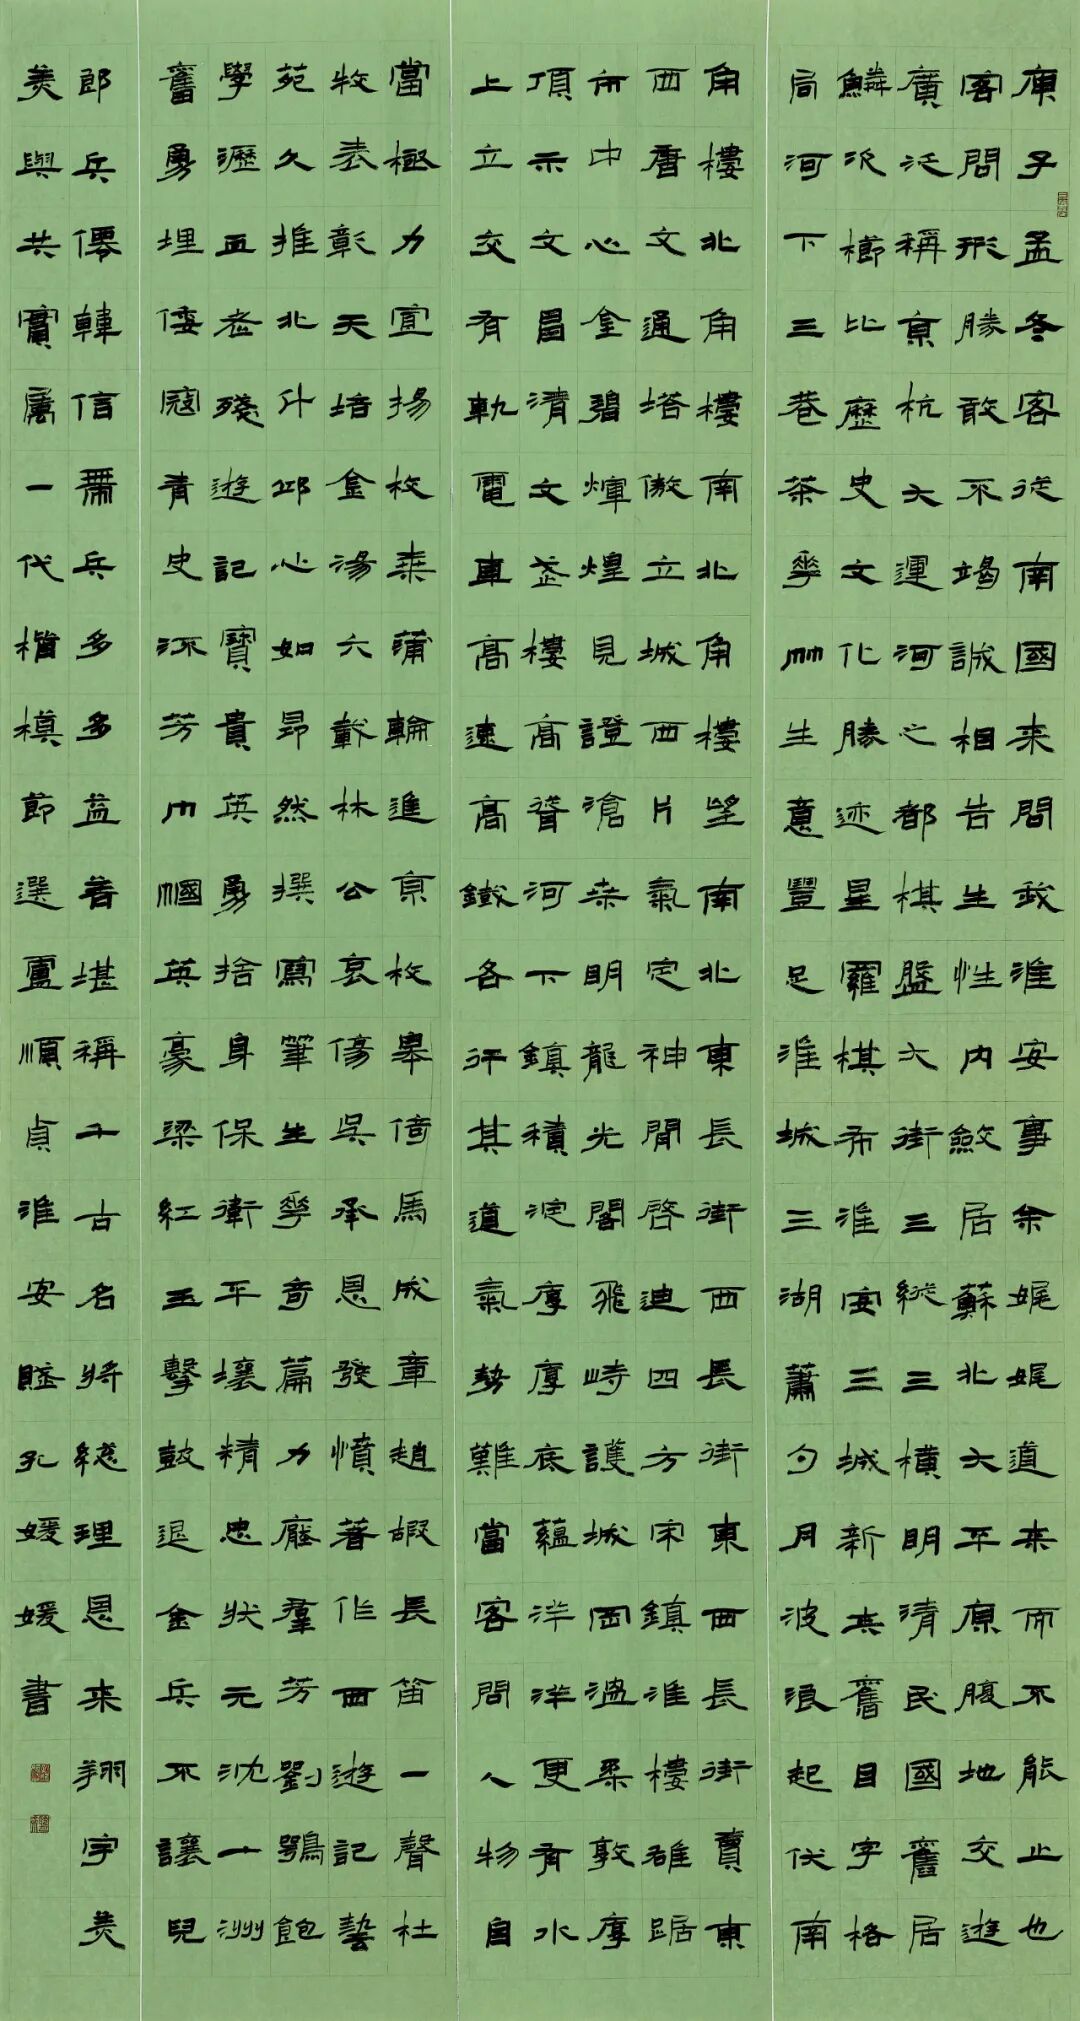 庚子孟冬客從南國来問我淮安事余娓娓道来而不能止也
客問形勝敢不竭誠相告生性内斂居蘇北大平原腹地交遊
廣泛稱京杭大運河之都棋盤六街三縱三橫明清民國舊居
鱗次櫛比歷史文化勝迹星羅棋布淮安三城新共舊目字格
局河下三巷茶華叫生意豐足淮城三湖蕭勺月波浪起伏南
角樓北角樓南北角樓望南北東長街西長街東西長街賣東
西唐文通塔傲立城西片氣定神閒啓迪四方宋鎮淮樓雄踞
市中心金碧煇煌見證滄桑明龍光閣飛峙護城岡溫柔敦厚
頂示文昌清文峯樓高聳河下鎮積淀厚厚底蘊洋洋更有水
上立交有軌電車高速高鐵各行其道氣勢難當客問人物自
當極力宣揚枚乘蒲輪進京枚皋倚馬成章趙嘏長笛一聲杜
牧表彰天培金湯六載林公哀傷吳承恩發憤著作西遊記藝
苑久推北斗邱心如昂然撰寫筆生華奇篇力壓羣芳劉鶚飽
學瀝血老殘遊記寶貴英勇捨身保衛平壤精忠狀元沈十洲
奮勇埋倭寇青史流芳巾幗英豪梁紅玉擊鼓退金兵不讓兒
郎兵僊韓信帶兵多多益善堪稱千古名將總理恩来翔宇美
美與共實屬一代楷模節選盧順貞淮安賦孔媛媛書